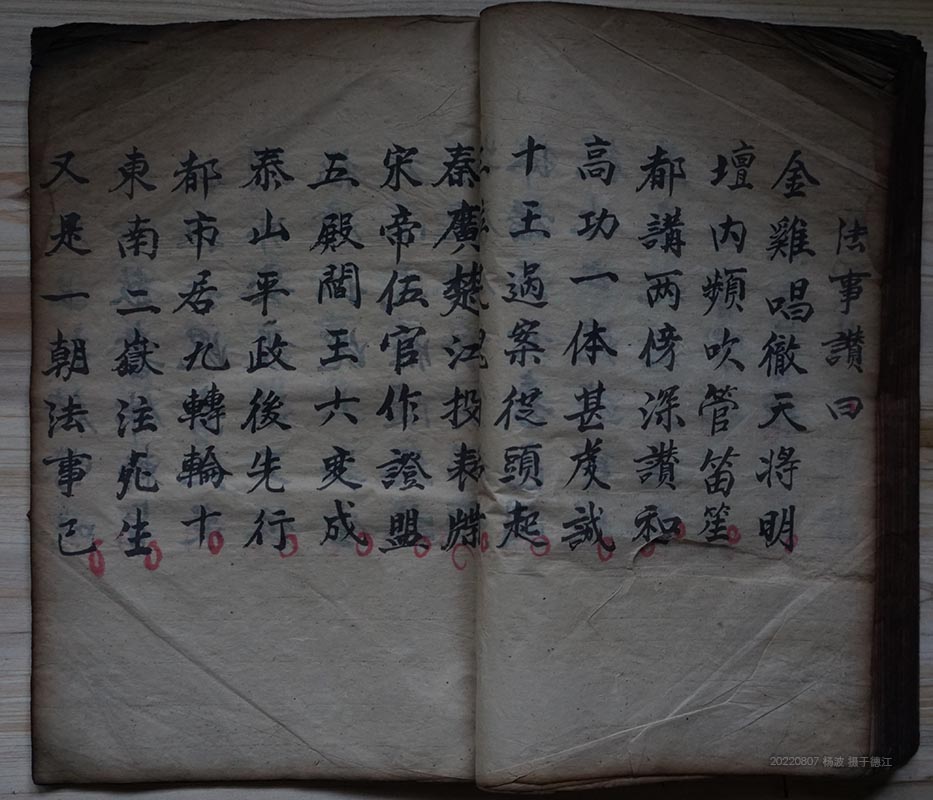 法事讃曰
金雞唱徹天將明
壇内頻吹管笛笙
都講两傍深讃和
高功一体甚虔誠
十王過案從頭起
秦廣楚江投表牒
宋帝伍官作證盟
五殿閻王六变成
泰山平政後先行
都市居九轉輪十
東南二嶽注死生
又是一朝法事已
20220807 杨波 摄于德江